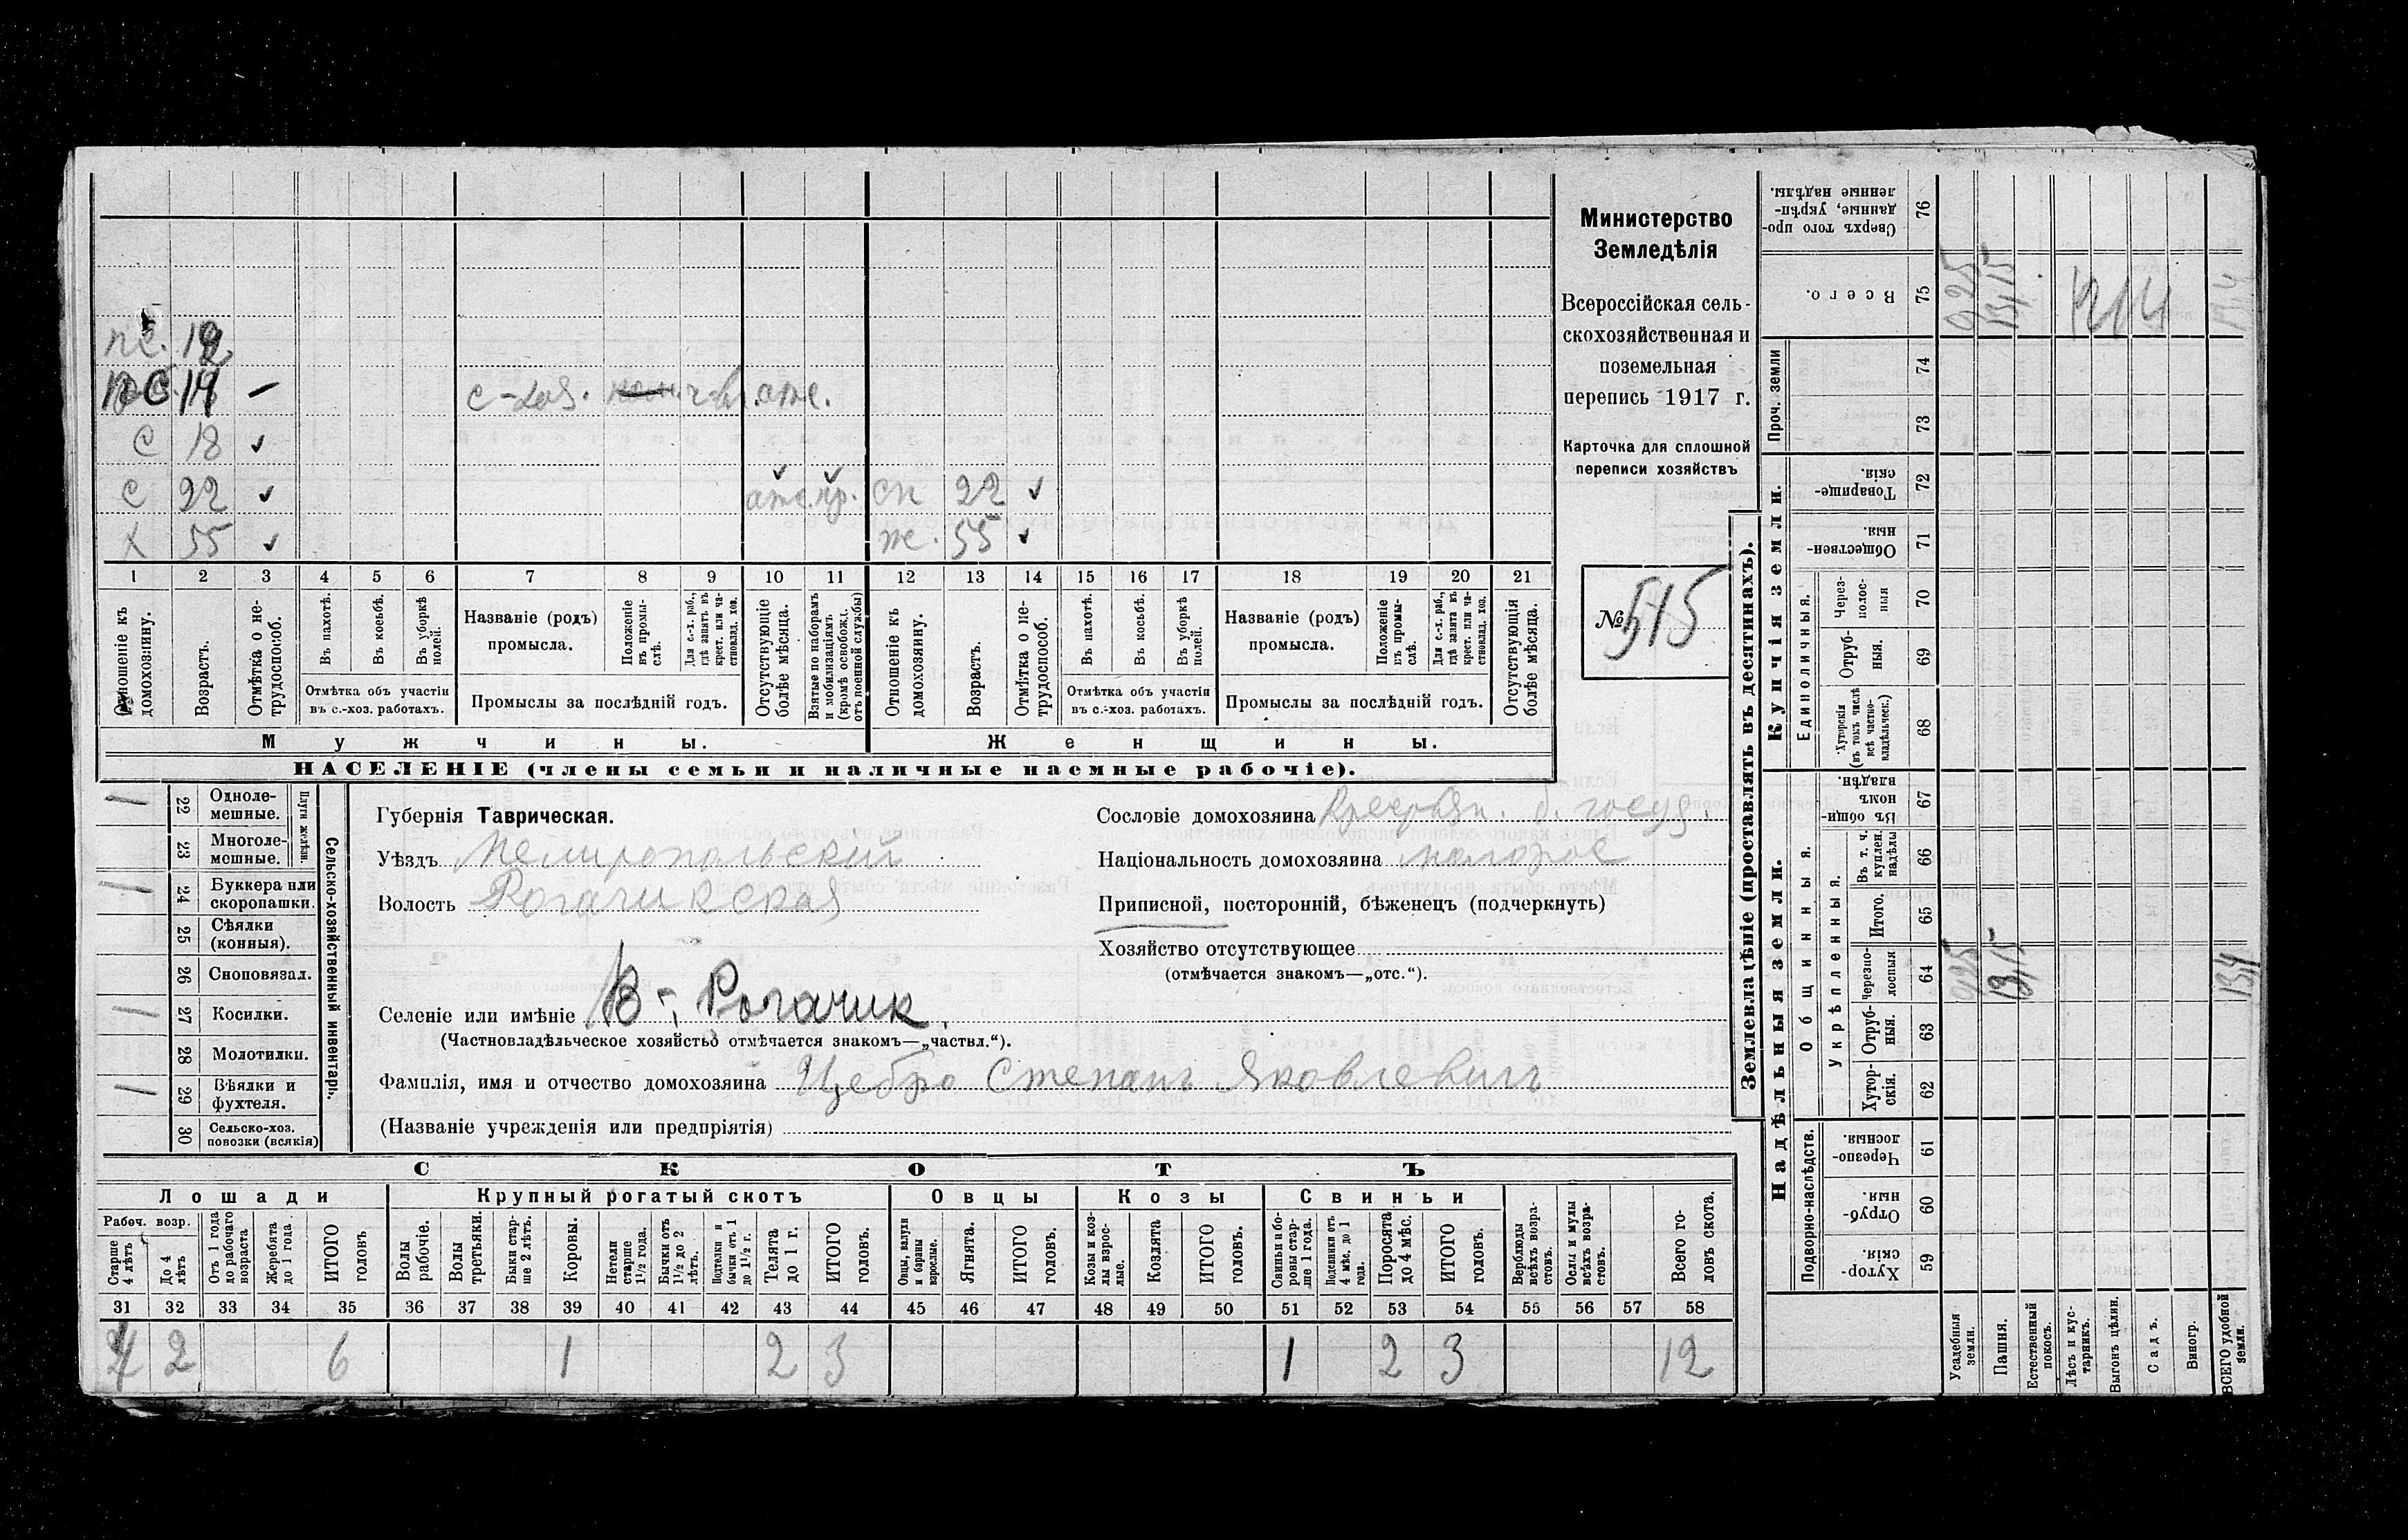 пс. 19
пс 17 — с-хоз. ч-вл. отс.
с 18 ✓
с 22 ✓ отс. пр. сн 22 ✓
х 55 ✓ ж. 55 ✓
1 2 3 4 5 6 7 8 9 10 11 12 13 14 15 16 17 18 19 20 21
Отношеніе къ домохозяину.
Возрастъ.
Отмѣтка о нетрудоспособ.
Въ пахотѣ.
Въ косьбѣ.
Въ уборкѣ полей.
Отмѣтка объ участіи въ с.-хоз. работахъ.
Названіе (родъ) промысла.
Положеніе въ промыслѣ.
Для с.-х. раб., гдѣ занятъ въ крест. или частновлад. хоз.
Промыслы за послѣдній годъ.
Отсутствующіе болѣе мѣсяца.
Взятые по наборамъ и мобилизаціямъ (кромѣ освобожд. отъ военной службы)
Отношеніе къ домохозяину.
Возрастъ.
Отмѣтка о нетрудоспособ.
Въ пахотѣ.
Въ косьбѣ.
Въ уборкѣ полей.
Отмѣтка объ участіи въ с.-хоз. работахъ.
Названіе (родъ) промысла.
Положеніе въ промыслѣ.
Для с.-х. раб., гдѣ занята въ крест. или частновлад. хоз.
Промыслы за послѣдній годъ.
Отсутствующія болѣе мѣсяца.
Мужчины.
Женщины.
НАСЕЛЕНІЕ (члены семьи и наличные наемные рабочіе).
Министерство
Земледѣлія
Всероссійская сель-
скохозяйственная и
поземельная
перепись 1917 г.
Карточка для сплошной
переписи хозяйствъ
№ 515
Сельско-хозяйственный инвентарь.
Плуги желѣзн.
22 Одноле-мешные. 1
23 Многоле-мешные.
24 Буккера или скоропашки. 1
25 Сѣялки (конныя).
26 Сноповязал.
27 Косилки. 1
28 Молотилки.
29 Вѣялки и фухтеля. 1
30 Сельско-хоз. повозки (всякія)
Губернія Таврическая.
Уѣздъ Мелитопольскій
Волость Рогачикская
Селеніе или имѣніе В-Рогачик.
(Частновладѣльческое хозяйство отмѣчается знакомъ—„частвл.“).
Фамилія, имя и отчество домохозяина Цебро Степанъ Яковлевичъ
(Названіе учрежденія или предпріятія)
Сословіе домохозяина Крестьян. б. госуд.
Національность домохозяина малорос
Приписной, посторонній, бѣженецъ (подчеркнуть)
Хозяйство отсутствующее
(отмѣчается знакомъ—„отс.“).
СКОТЪ
Лошади
Крупный рогатый скотъ
Овцы
Козы
Свиньи
Рабоч. возр.
Старше 4 лѣтъ
До 4 лѣтъ
Отъ 1 года до рабочаго возраста
Жеребята до 1 года.
ИТОГО головъ
Волы рабочіе.
Волы третьяки.
Быки старше 2 лѣтъ.
Коровы.
Нетели старше 1½ года.
Бычки отъ 1½ до 2 лѣтъ.
Подтелки и бычки отъ 1 до 1½ г.
Телята до 1 г.
ИТОГО головъ.
Овцы, валухи и бараны взрослые.
Ягнята.
ИТОГО головъ.
Козы и козлы взрослые.
Козлята
ИТОГО головъ.
Свиньи и боровы старше 1 года.
Подсвинки отъ 4 мѣс. до 1 года.
Поросята до 4 мѣс.
ИТОГО головъ.
Верблюды всѣхъ возрастовъ.
Ослы и мулы всѣхъ возрастовъ.
Всего головъ скота.
31 32 33 34 35 36 37 38 39 40 41 42 43 44 45 46 47 48 49 50 51 52 53 54 55 56 57 58
4 2 6 1 2 3 1 2 3 12
Землевладѣніе (проставлять въ десятинахъ).
Купчія земли.
Надѣльныя земли.
Сверхъ того проданные, укрѣпленные надѣлы. 76
Всего. 75
Проч. земли
74
73
Товарищескія. 72
Общественныя. 71
Единоличныя.
Черезполосныя 70
Отрубныя. 69
Хуторскія (въ томъ числѣ всѣ частновладѣльческ.) 68
Общинныя.
Въ общинномъ владѣн. 67
Укрѣпленныя.
Въ т. ч. куплен. надѣлы 66
Итого. 65
Черезполосныя 64
Отрубныя. 63
Хуторскія. 62
Подворно-наслѣдств.
Черезполосныя. 61
Отрубныя. 60
Хуторскія. 59
Усадебныя земли.
Пашня.
Естественный покосъ.
Лѣсъ и кустарникъ.
Выгонъ цѣлин.
Садъ.
Виногр.
ВСЕГО удобной земли.
0,25
13,15
13,4